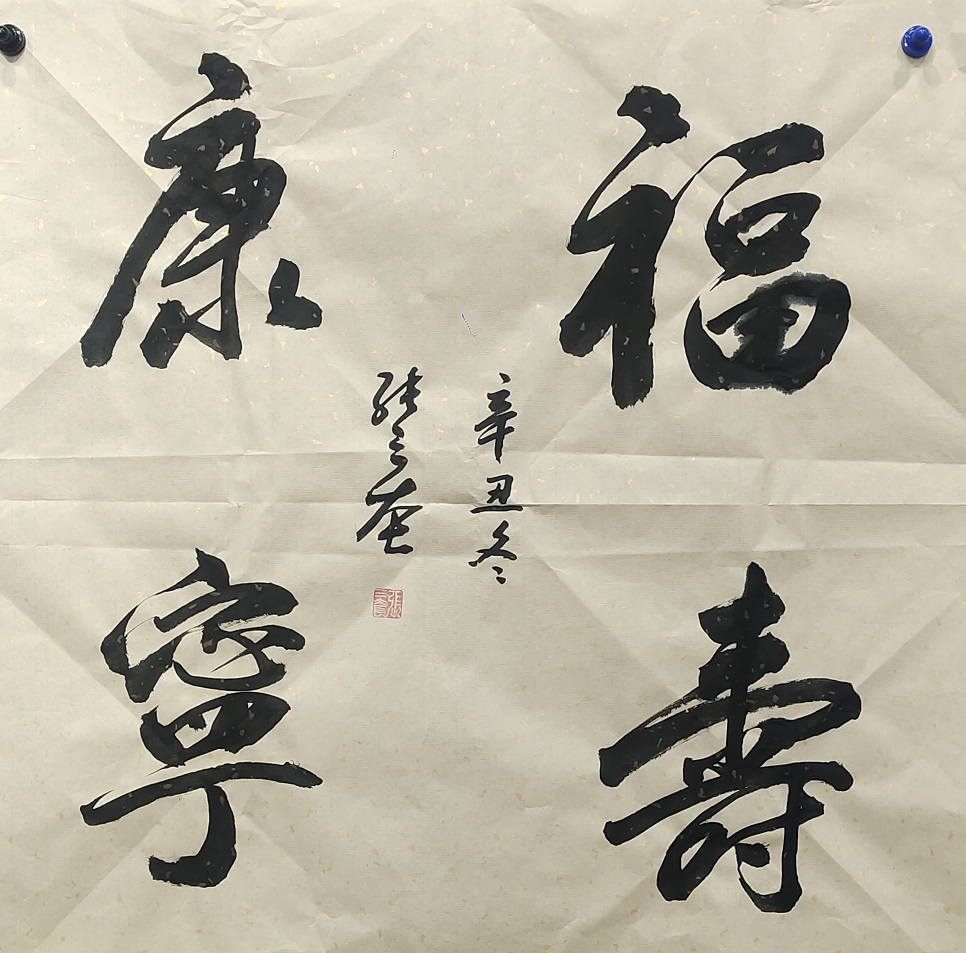 福壽
康寧
辛丑冬
张